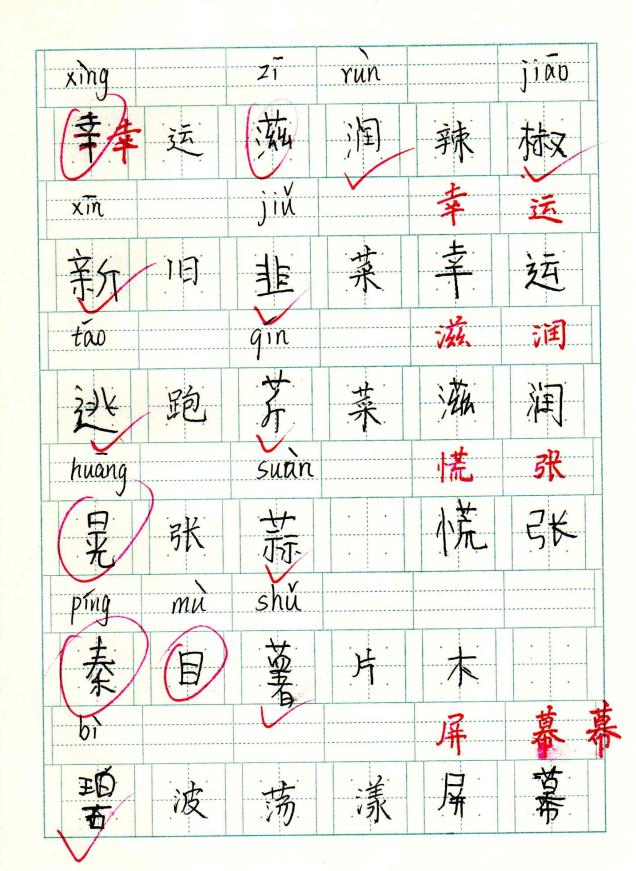 xìng zī rùn jiāo
幸幸运滋润辣椒
xīn jiǔ 幸运
新旧韭菜幸运
táo qín 滋润
逃跑芹菜滋润
huāng suàn 慌张
晃张蒜慌张
píng mù shǔ
秦目薯片木
bì 屏幕幕
碧波荡漾屏幕